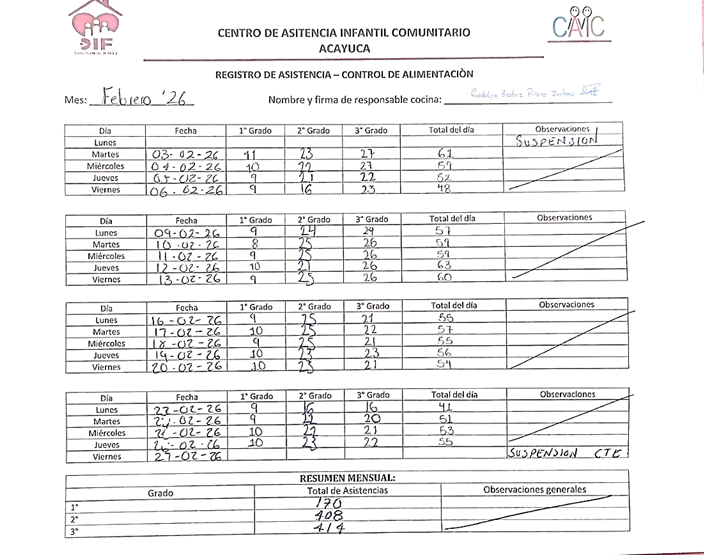 DIF
CAIC
CENTRO DE ASITENCIA INFANTIL COMUNITARIO
ACAYUCA
REGISTRO DE ASISTENCIA – CONTROL DE ALIMENTACIÒN
Mes: Febrero '26 Nombre y firma de responsable cocina:
Día Fecha 1° Grado 2° Grado 3° Grado Total del día Observaciones
Lunes SUSPENSION
Martes 03-02-26 11 23 27 61
Miércoles 04-02-26 10 22 27 59
Jueves 05-02-26 9 21 22 52
Viernes 06-02-26 9 16 23 48
Día Fecha 1° Grado 2° Grado 3° Grado Total del día Observaciones
Lunes 09-02-26 9 24 24 57
Martes 10-02-26 8 25 26 59
Miércoles 11-02-26 9 25 26 59
Jueves 12-02-26 10 26 63
Viernes 13-02-26 9 25 26 60
Día Fecha 1° Grado 2° Grado 3° Grado Total del día Observaciones
Lunes 16-02-26 9 25 21 55
Martes 17-02-26 10 25 22 57
Miércoles 18-02-26 9 25 21 55
Jueves 19-02-26 10 23 23 56
Viernes 20-02-26 10 23 21 54
Día Fecha 1° Grado 2° Grado 3° Grado Total del día Observaciones
Lunes 23-02-26 9 16 16 41
Martes 9 22 20 51
Miércoles 10 22 21 53
Jueves 10 23 22 55
Viernes 27-02-26 SUSPENSION CTE
RESUMEN MENSUAL:
Grado Total de Asistencias Observaciones generales
1° 170
2° 408
3° 414